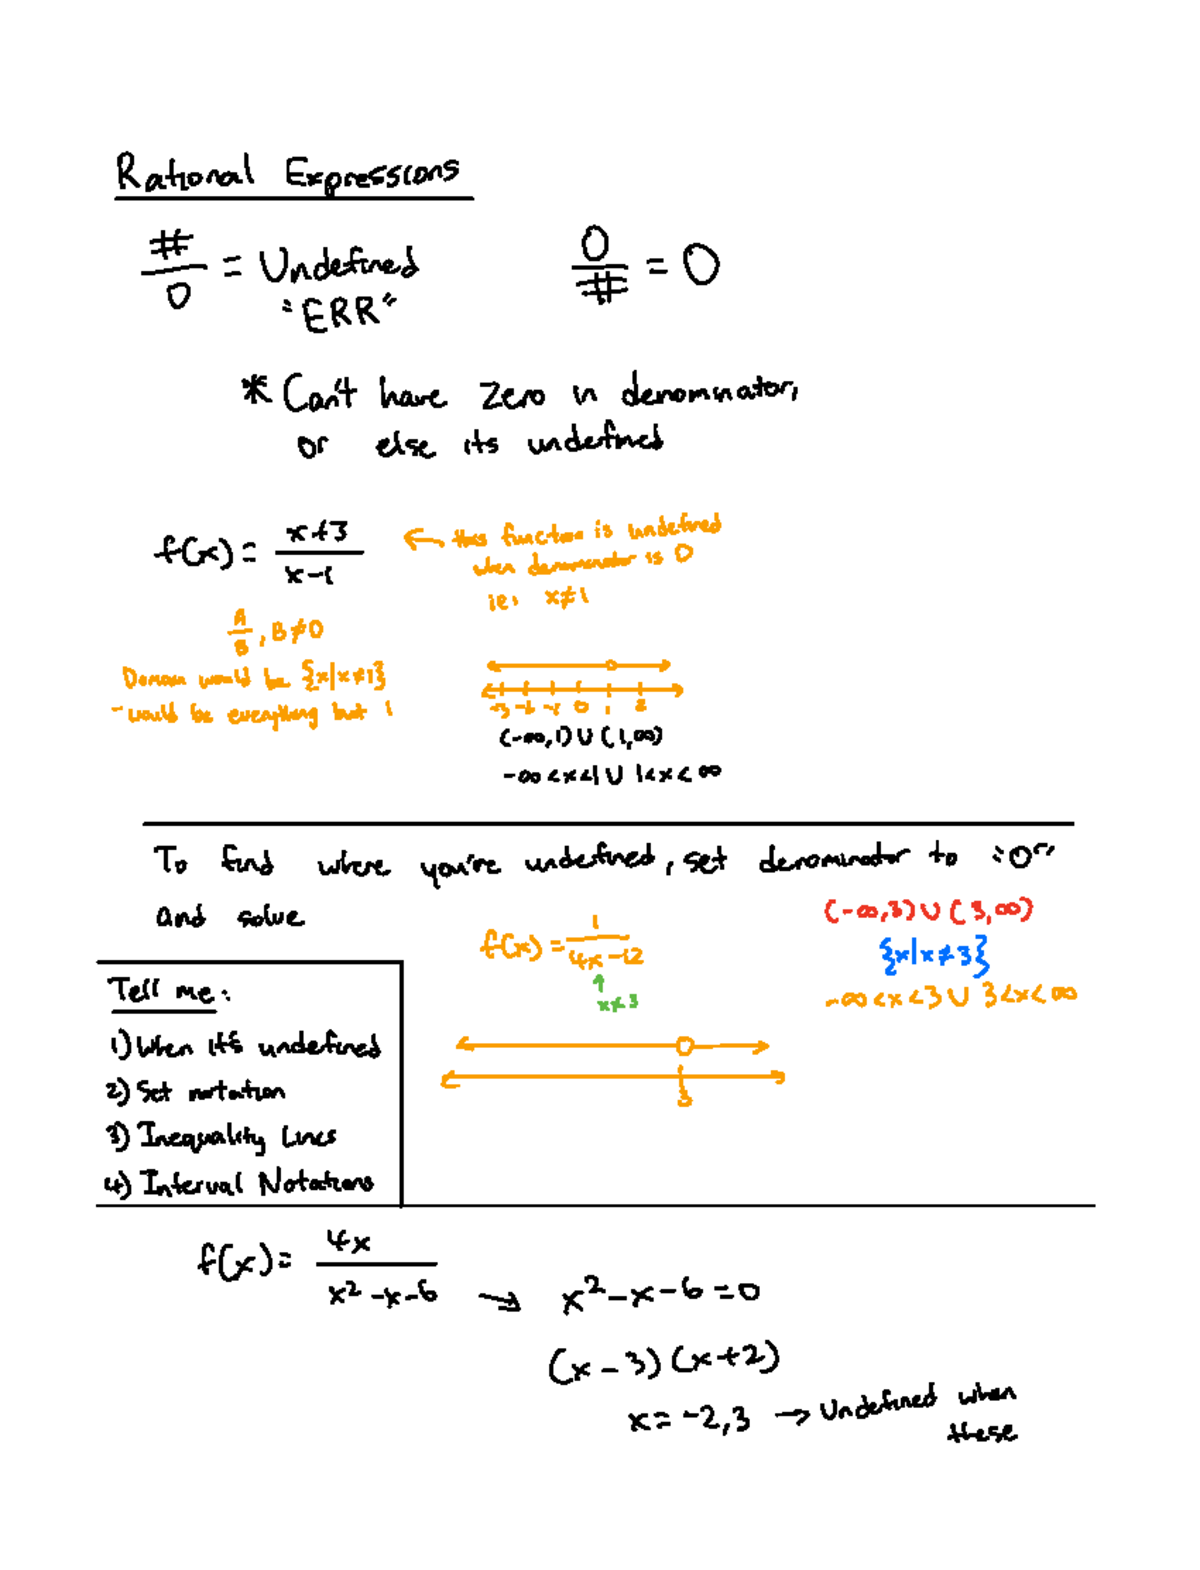 Rational Expressions
#/0 = Undefined
"ERR"
0/# = 0
* Can't have zero in denominator,
or else its undefined
f(x) = x+3/x-1
← this function is undefined
when denominator is 0
ie, x≠1
A/B, B≠0
Domain would be {x|x≠1}
- would be everything but 1
-3 -2 -1 0 1 2
(-∞,1) U (1,∞)
-∞<x<1 U 1<x<∞
To find where you're undefined, set denominator to "0"
and solve
f(x) = 1/4x-12
x≠3
(-∞,3) U (3,∞)
{x|x≠3}
-∞<x<3 U 3<x<∞
3
Tell me:
1) When it's undefined
2) Set notation
3) Inequality Lines
4) Interval Notations
f(x) = 4x/x²-x-6 → x²-x-6=0
(x-3)(x+2)
x=-2,3 → Undefined when
these